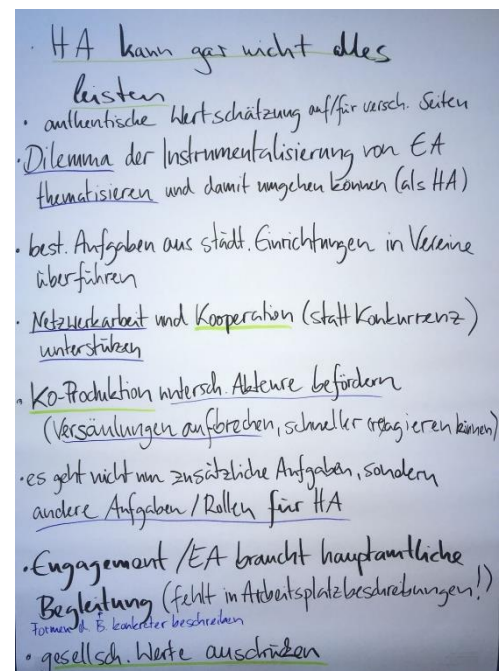 · HA kann gar nicht alles
leisten
· authentische Wertschätzung auf/für versch. Seiten
· Dilemma der Instrumentalisierung von EA
thematisieren und damit umgehen können (als HA)
· best. Aufgaben aus städt. Einrichtungen in Vereine
überführen
· Netzwerkarbeit und Kooperation (statt Konkurrenz)
unterstützen
· Ko-Produktion untersch. Akteure befördern
(Versäulungen aufbrechen, schneller reagieren können)
· es geht nicht um zusätzliche Aufgaben, sondern
andere Aufgaben / Rollen für HA
· Engagement / EA braucht hauptamtliche
Begleitung (fehlt in Arbeitsplatzbeschreibungen!)
Formen d. B. konkreter beschreiben
· gesellsch. Werte ausdrücken